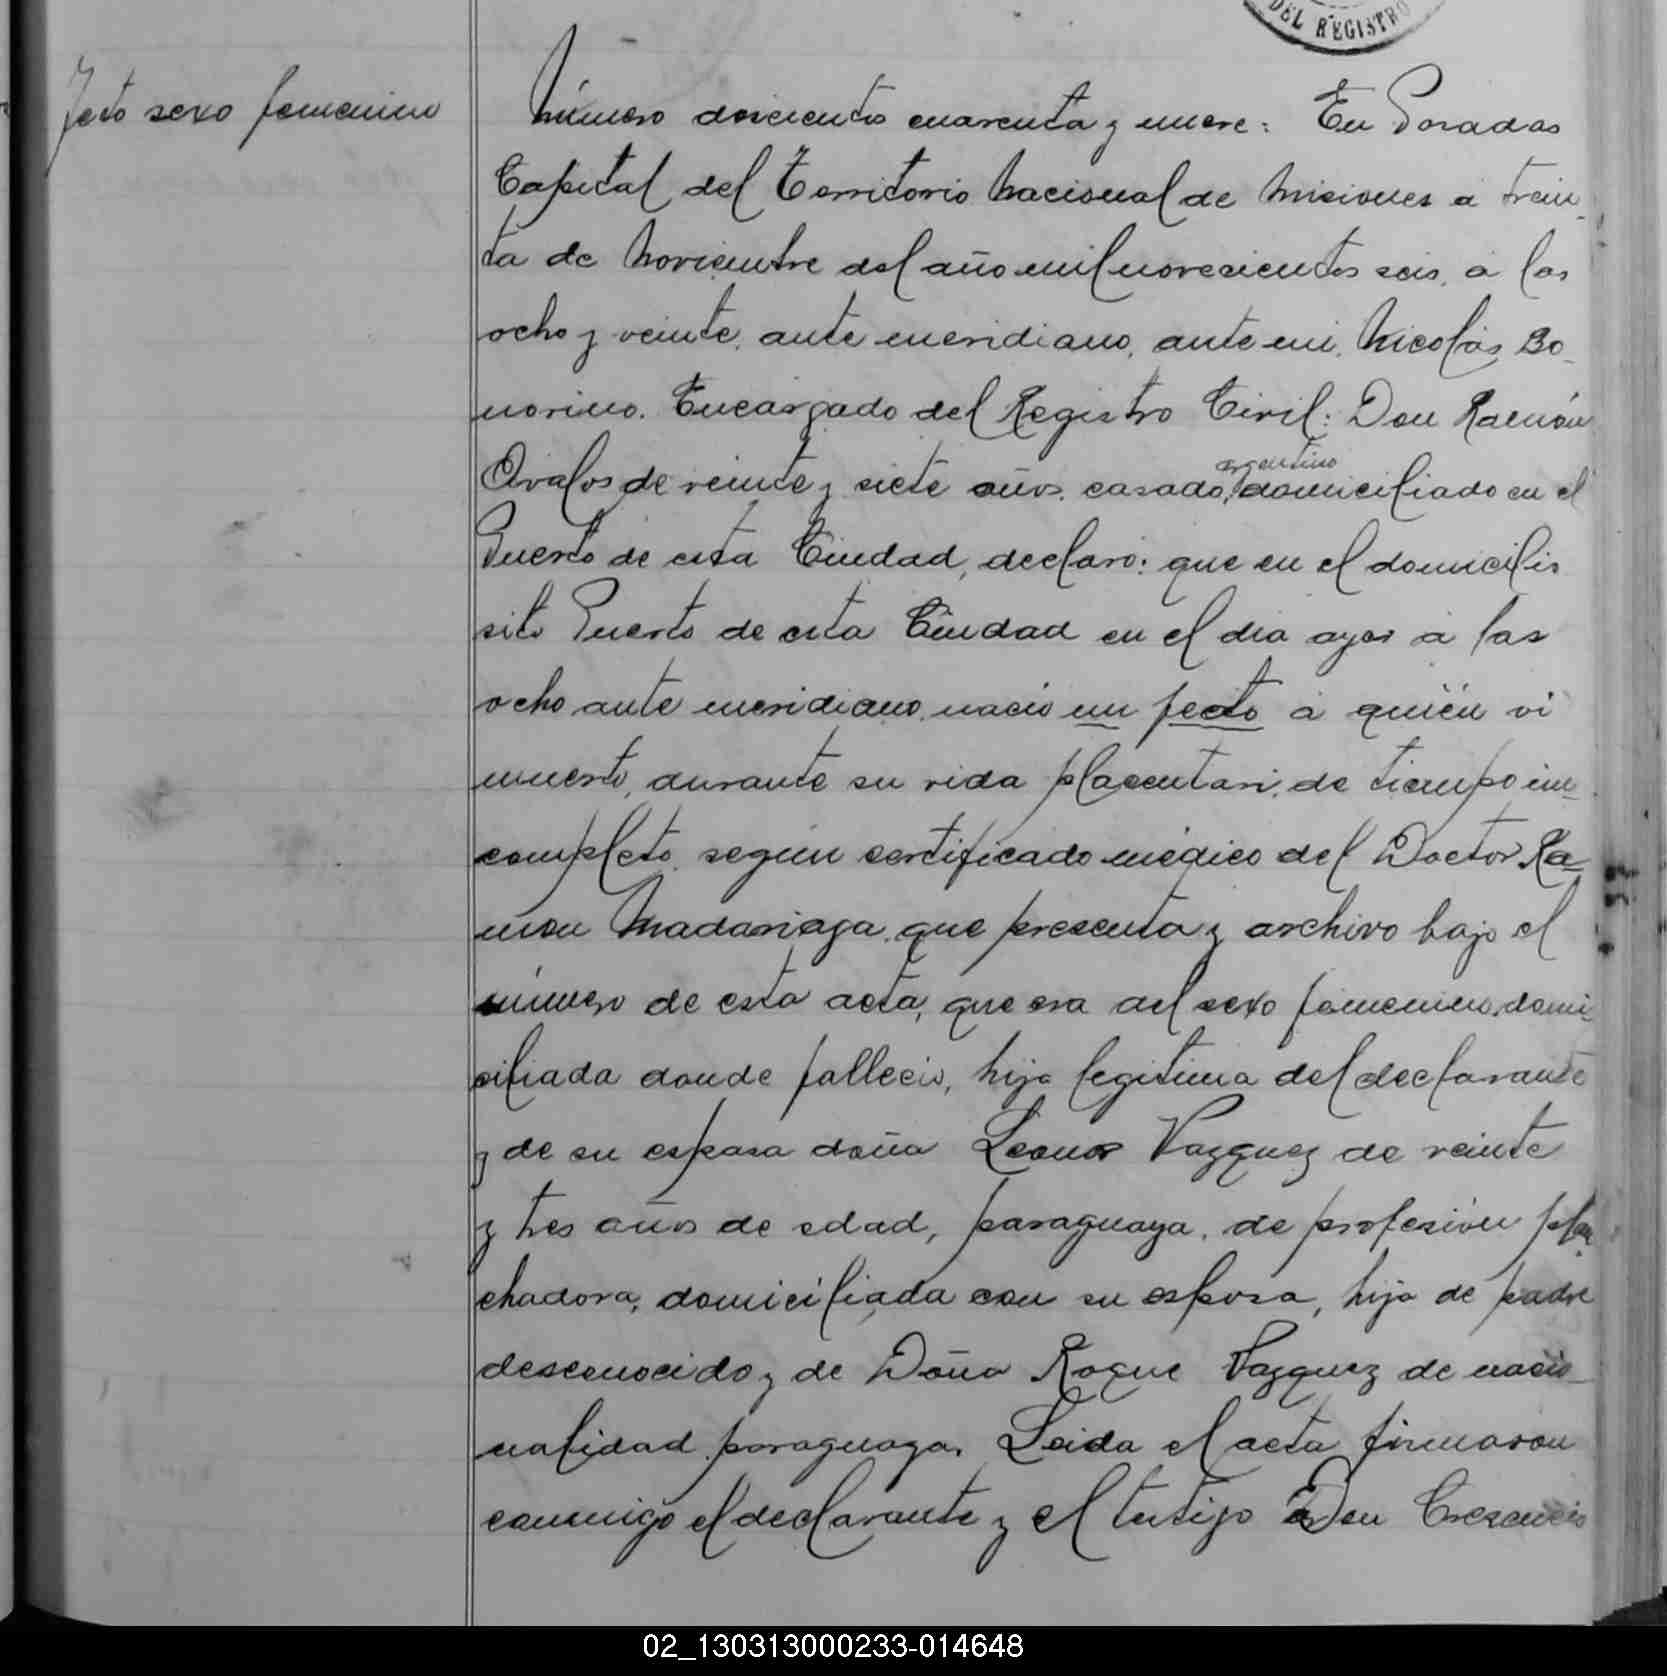 DEL REGISTRO
Feto sexo femenino
Número doscientos cuarenta y nueve: En Posadas
Capital del Territorio Nacional de Misiones á trein-
ta de Noviembre del año mil novecientos seis, á las
ocho y veinte, ante meridiano, ante mi, Nicolás Bo-
norino. Encargado del Registro Civil: Don Ramón
argentino
Avalos de veinte y siete años, casado, domiciliado en el
Puerto de esta Ciudad, declaró: que en el domicilio
sito Puerto de esta Ciudad en el dia ayer á las
ocho ante meridiano, nació un feto á quién vi
muerto, durante su vida placentari, de tiempo in-
completo, según certificado médico del Doctor Ra-
mon Madariaga, que presenta y archivo bajo el
número de esta acta, que era del sexo femenino, domi-
ciliada donde falleció, hija legitima del declarante
y de su esposa doña Leonor Vazquez de veinte
y tres años de edad, paraguaya, de profesión plan
chadora, domiciliada con su esposo, hija de padre
desconocido y de Doña Roque Vazquez de nacio-
nalidad paraguaya. Leida el acta firmaron
conmigo el declarante y el testigo Don Crescencio
02_130313000233-014648